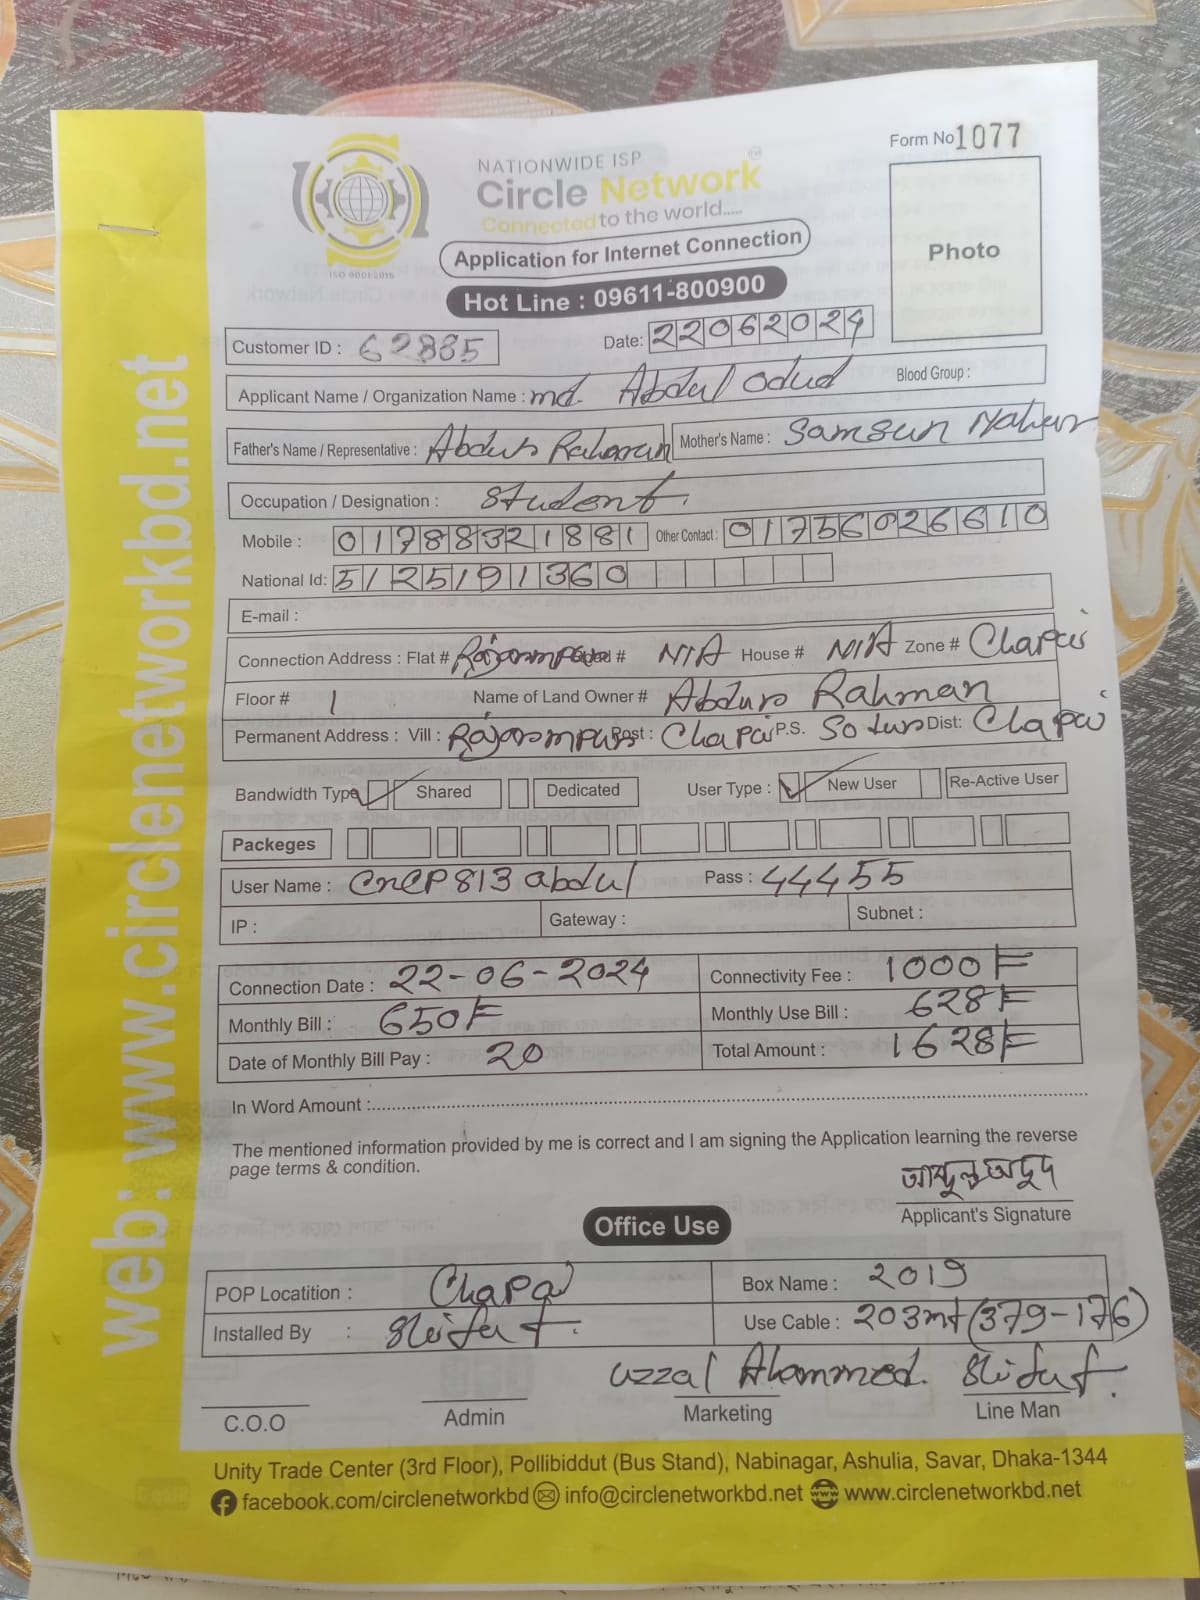 Form No 1077
NATIONWIDE ISP
Circle Network
Connected to the world.....
ISO 9001:2015
Application for Internet Connection
Hot Line : 09611-800900
Photo
Customer ID : 62885
Date: 22062024
Applicant Name / Organization Name : md. Abdul odud Blood Group :
Father's Name / Representative : Abdur Rahaman Mother's Name : Samsun Nahar
Occupation / Designation : Student
Mobile : 01788321881 Other Contact : 01756026610
National Id: 5125191360
E-mail :
Connection Address : Flat # Rajarampur Road # N/A House # N/A Zone # Chapai
Floor # 1 Name of Land Owner # Abdur Rahman
Permanent Address : Vill : Rajarampur Post : Chapai P.S. Sodur Dist: Chapai
Bandwidth Type Shared Dedicated User Type : New User Re-Active User
Packeges
User Name : CNCP813abdul Pass : 44455
IP : Gateway : Subnet :
Connection Date : 22-06-2024 Connectivity Fee : 1000
Monthly Bill : 650 Monthly Use Bill : 628
Date of Monthly Bill Pay : 20 Total Amount : 1628
In Word Amount :
The mentioned information provided by me is correct and I am signing the Application learning the reverse
page terms & condition.
আব্দুল অদুদ
Applicant's Signature
Office Use
POP Locatition : Chapai Box Name : 2019
Installed By : Shifat. Use Cable : 203mt(379-176)
uzzal Ahammed. Shifat.
C.O.O Admin Marketing Line Man
Unity Trade Center (3rd Floor), Pollibiddut (Bus Stand), Nabinagar, Ashulia, Savar, Dhaka-1344
facebook.com/circlenetworkbd info@circlenetworkbd.net www.circlenetworkbd.net
web: www.circlenetworkbd.net